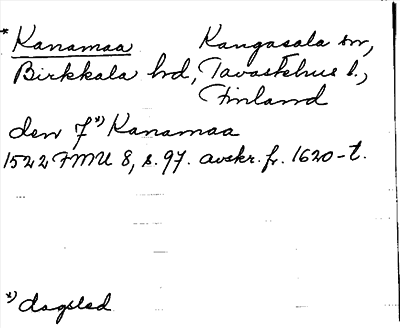 * Kanamaa Kangasala sn,
Birkkala hd, Tavastehus l.,
Finland
den 7 *) Kanamaa
1522 FMU 8, s. 97. avskr. fr. 1620-t.
*) dagsled